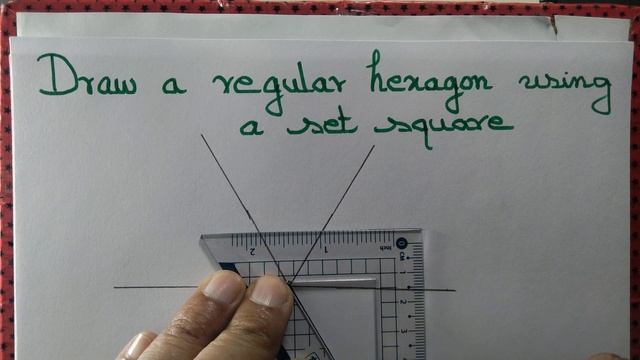 Draw a regular hexagon using
a set square
2 1 Inch 0
CM
1
2
3